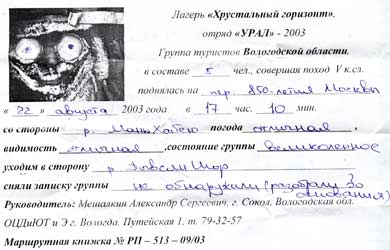 Лагерь «Хрустальный горизонт»,
отряд «УРАЛ» - 2003
Группа туристов Вологодской области,
в составе 5 чел., совершая поход V к.сл.
поднялась на пер. 850-летия Москвы
« 22 » августа 2003 года в 17 час. 10 мин.
со стороны р. Мань-Хобею погода отличная,
видимость отличная, состояние группы великолепное
уходим в сторону р. Шор
сняли записку группы не обнаружили (разобрали до основания)
Руководитель: Мешалкин Александр Сергеевич, г. Сокол, Вологодская обл.
ОЦДиЮТ и Э г. Вологда, Путейская 1, т. 79-32-57
Маршрутная книжка № РП – 513 – 09/03